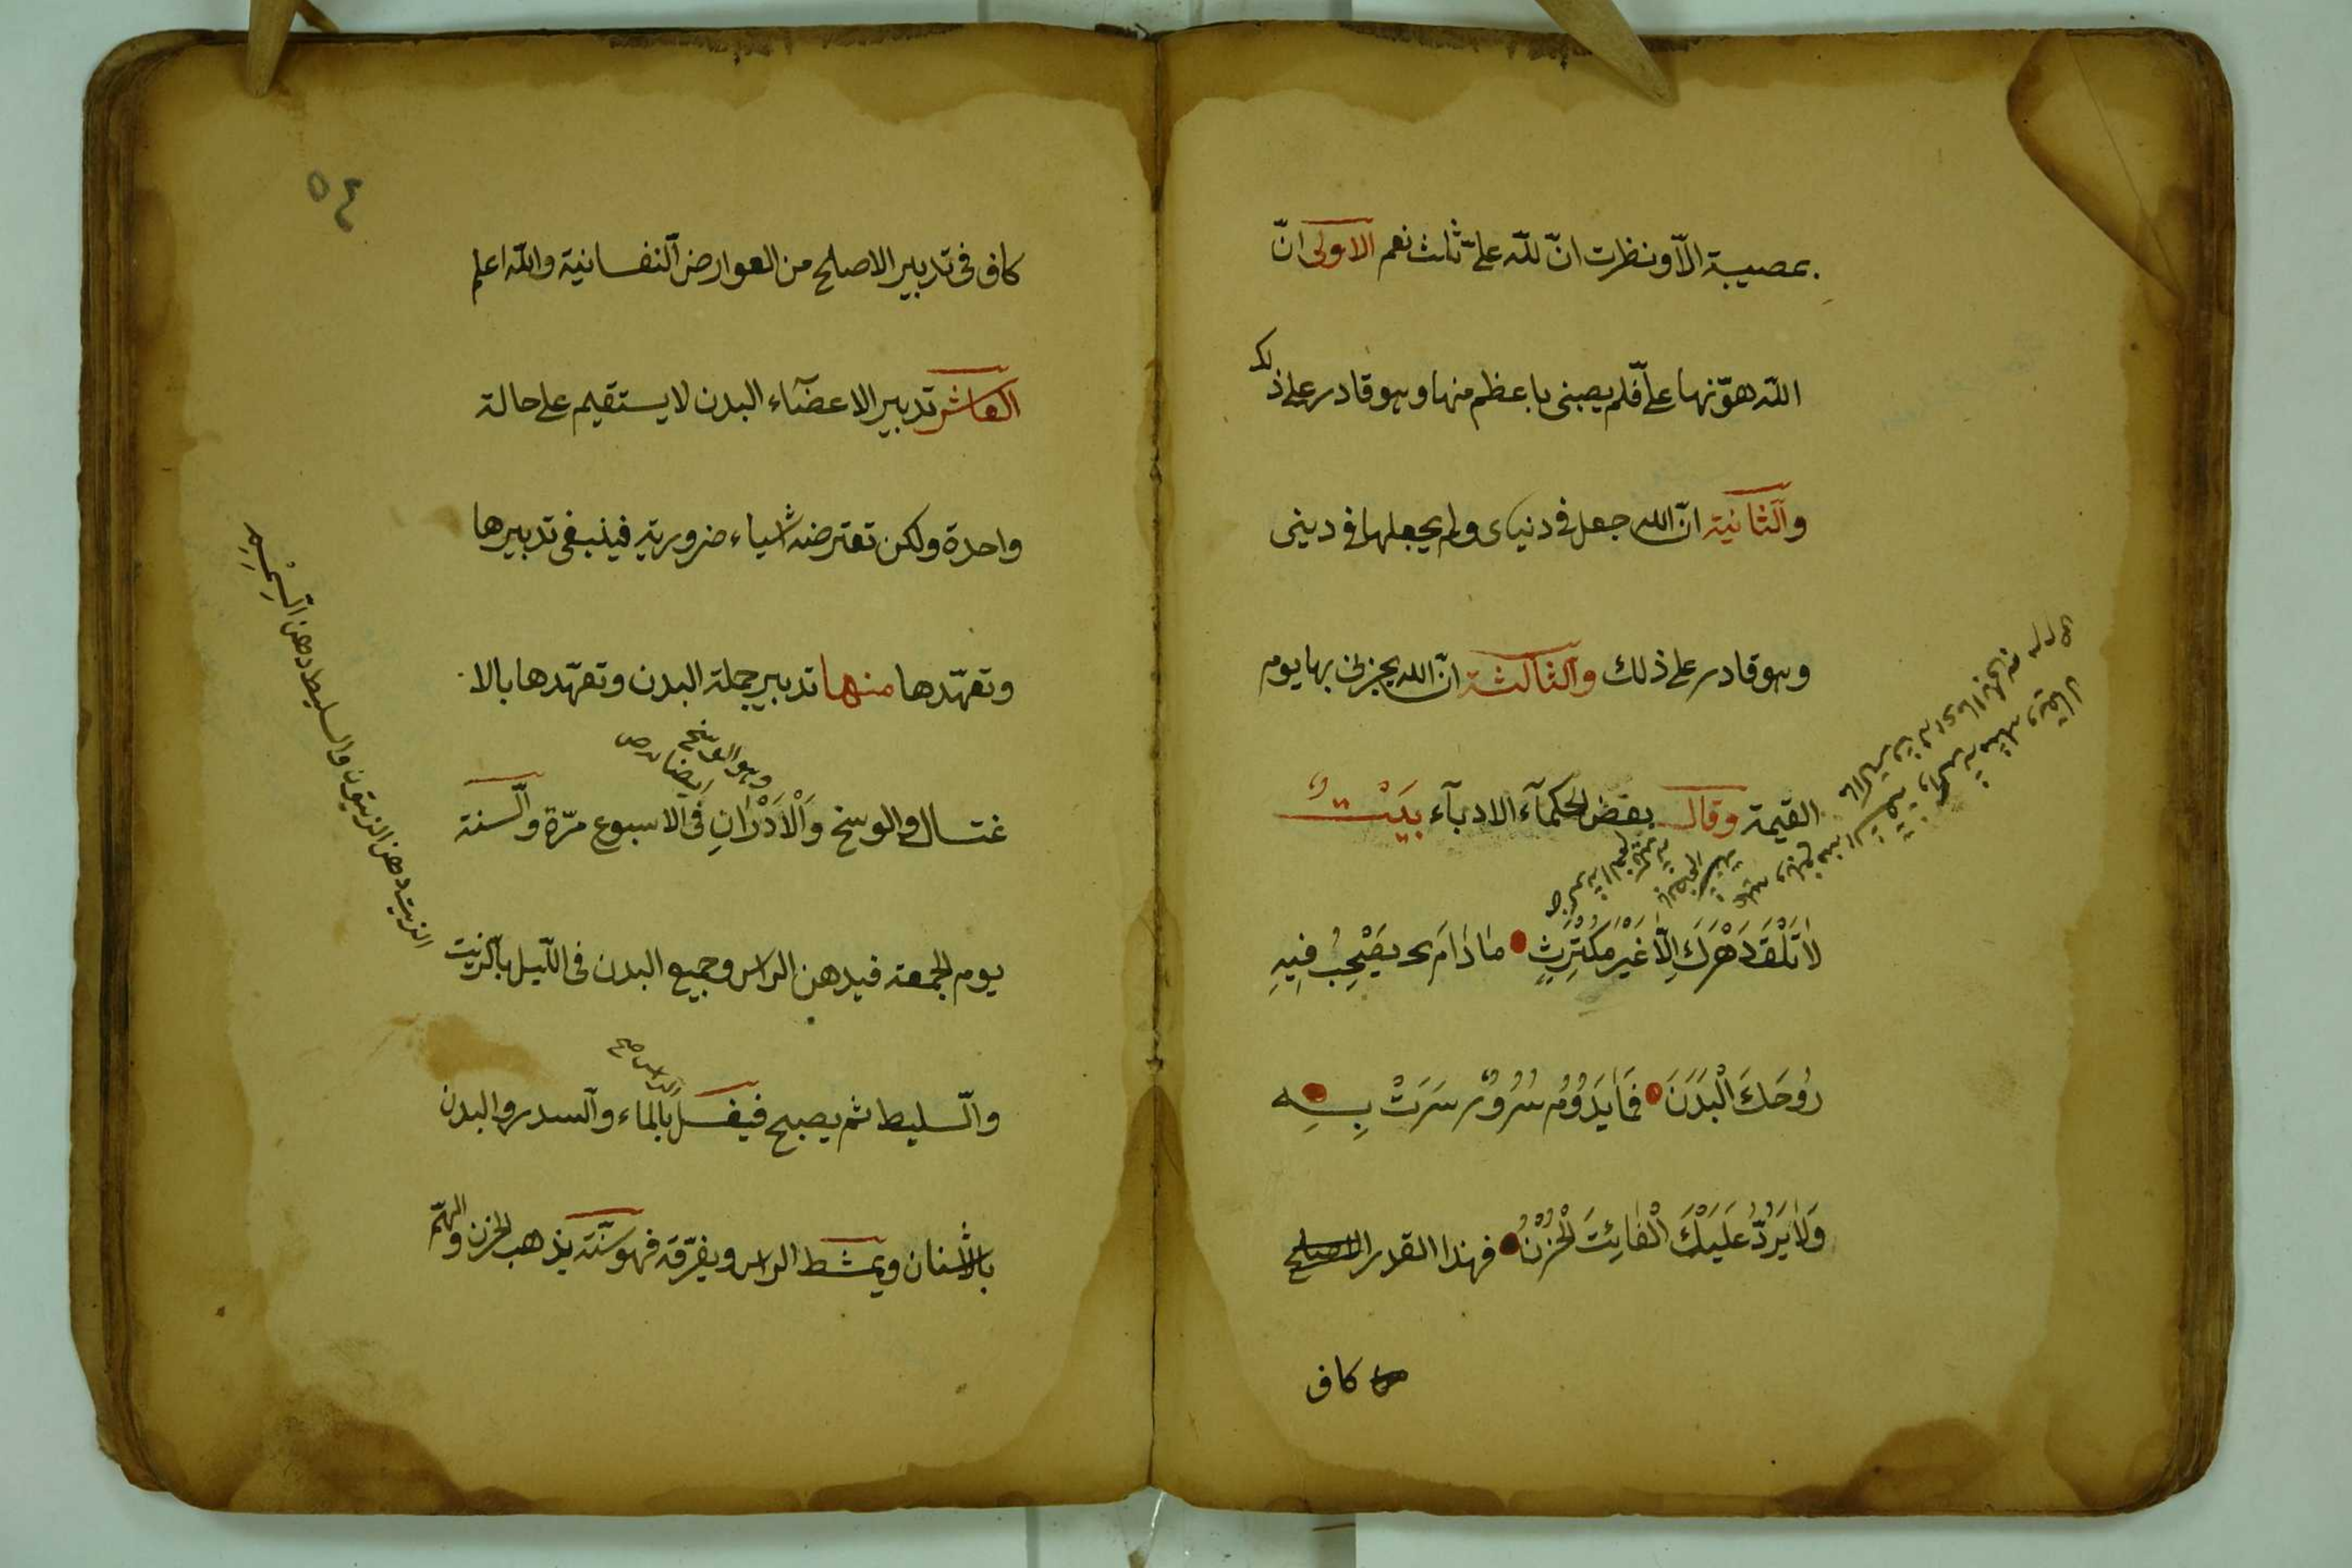 بمصيبة الّا ونظرت انّ للّه علىّ ثلث نعم الاولى انّ
اللّه هوّنها علىّ فلم يصبنى باعظم منها وهو قادر على ذلك
والثانية انّ اللّه جعل فى دنياى ولم يجعلها فى دينى
وهو قادر على ذلك والثالثة انّ اللّه يجزئنى بها يوم
القيمة وقال بعض الحكمآء الادبآء بَيْتٌ
لَا تَلْقَ دَهْرَكَ اِلَّا غَيْرَ مُكْتَرِثٍ مَا دَامَ يَصْحِبُ فِيهِ
رُوحَكَ الْبَدَنَ فَمَا يَدُوْمُ سُرُوْرٌ سَرَتْ بِهِ
وَلَا يَرُدُّ عَلَيْكَ الْفَائِتَ الْحُزْنُ فهذا القدر
كاف
٥٤
كاف فى تدبير الاصلح من العوارض النفسانية واللّه اعلم
العاشر تدبير الاعضآء البدن لا يستقيم على حالة
واحدة ولكن تعترضه اشياء ضرورية فينبغى تدبيرها
وتعهّدها منها تدبير جملة البدن وتعهّدها بالا
وهو الوسخ
ايضا
غتسال والوسخ وَالْاَدْرَانِ فى الاسبوع مرّة والسنة
يوم الجمعة فيدهن الراس وجميع البدن فى اللّيل بالزيت
الزيت دهن الزيتون والسليط دهن السِّمْسِمِ
الراس صح
والسليط ثم يصبح فيغسل بالماء والسدر والبدن
بالاشنان ويمشط الراس ويفرّقه فهو سنّة يذهب الحزن والهمّ